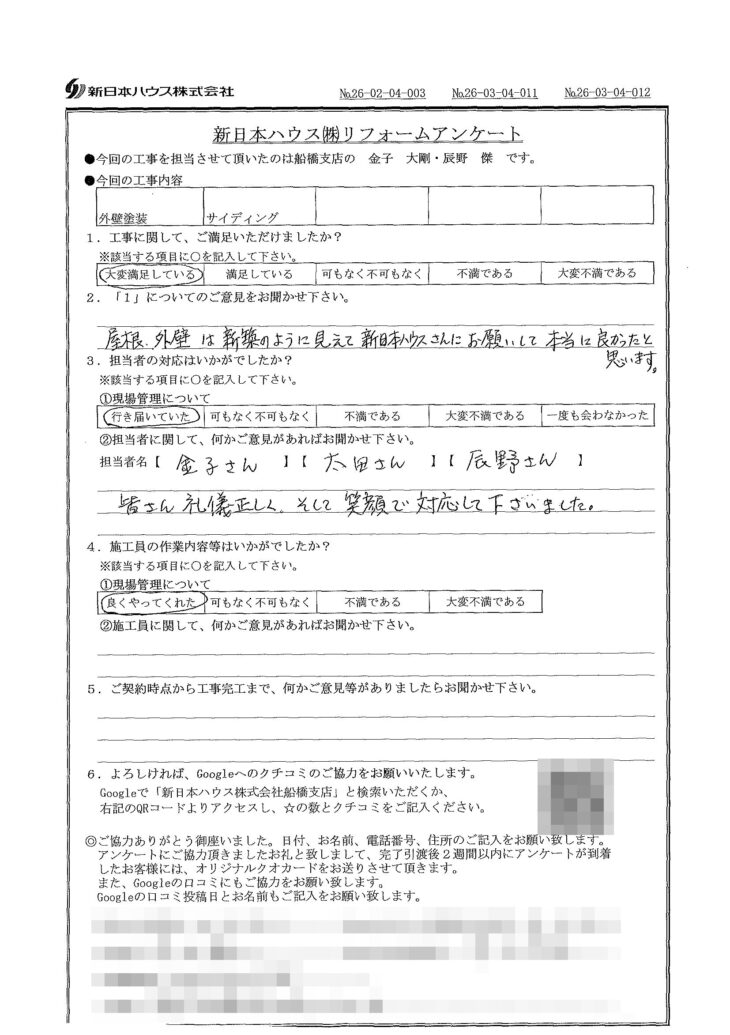 新日本ハウス株式会社 №26-02-04-003 №26-03-04-011 №26-03-04-012
新日本ハウス㈱リフォームアンケート
●今回の工事を担当させて頂いたのは船橋支店の 金子 大剛・辰野 傑 です。
●今回の工事内容
外壁塗装 サイディング
1．工事に関して、ご満足いただけましたか？
※該当する項目に○を記入して下さい。
大変満足している 満足している 可もなく不可もなく 不満である 大変不満である
2．「1」についてのご意見をお聞かせ下さい。
屋根、外壁は新築のように見えて新日本ハウスさんにお願いして本当に良かったと
思います。
3．担当者の対応はいかがでしたか？
※該当する項目に○を記入して下さい。
①現場管理について
行き届いていた 可もなく不可もなく 不満である 大変不満である 一度も会わなかった
②担当者に関して、何かご意見があればお聞かせ下さい。
担当者名【 金子さん 】【 太田さん 】【 辰野さん 】
皆さん礼儀正しく、そして笑顔で対応して下さいました。
4．施工員の作業内容等はいかがでしたか？
※該当する項目に○を記入して下さい。
①現場管理について
良くやってくれた 可もなく不可もなく 不満である 大変不満である
②施工員に関して、何かご意見があればお聞かせ下さい。
5．ご契約時点から工事完工まで、何かご意見等がありましたらお聞かせ下さい。
6．よろしければ、Googleへのクチコミのご協力をお願いいたします。
Googleで「新日本ハウス株式会社船橋支店」と検索いただくか、
右記のQRコードよりアクセスし、☆の数とクチコミをご記入ください。
◎ご協力ありがとう御座いました。日付、お名前、電話番号、住所のご記入をお願い致します。
アンケートにご協力頂きましたお礼と致しまして、完了引渡後２週間以内にアンケートが到着
したお客様には、オリジナルクオカードをお送りさせて頂きます。
また、Googleの口コミにもご協力をお願い致します。
Googleの口コミ投稿日とお名前もご記入をお願い致します。